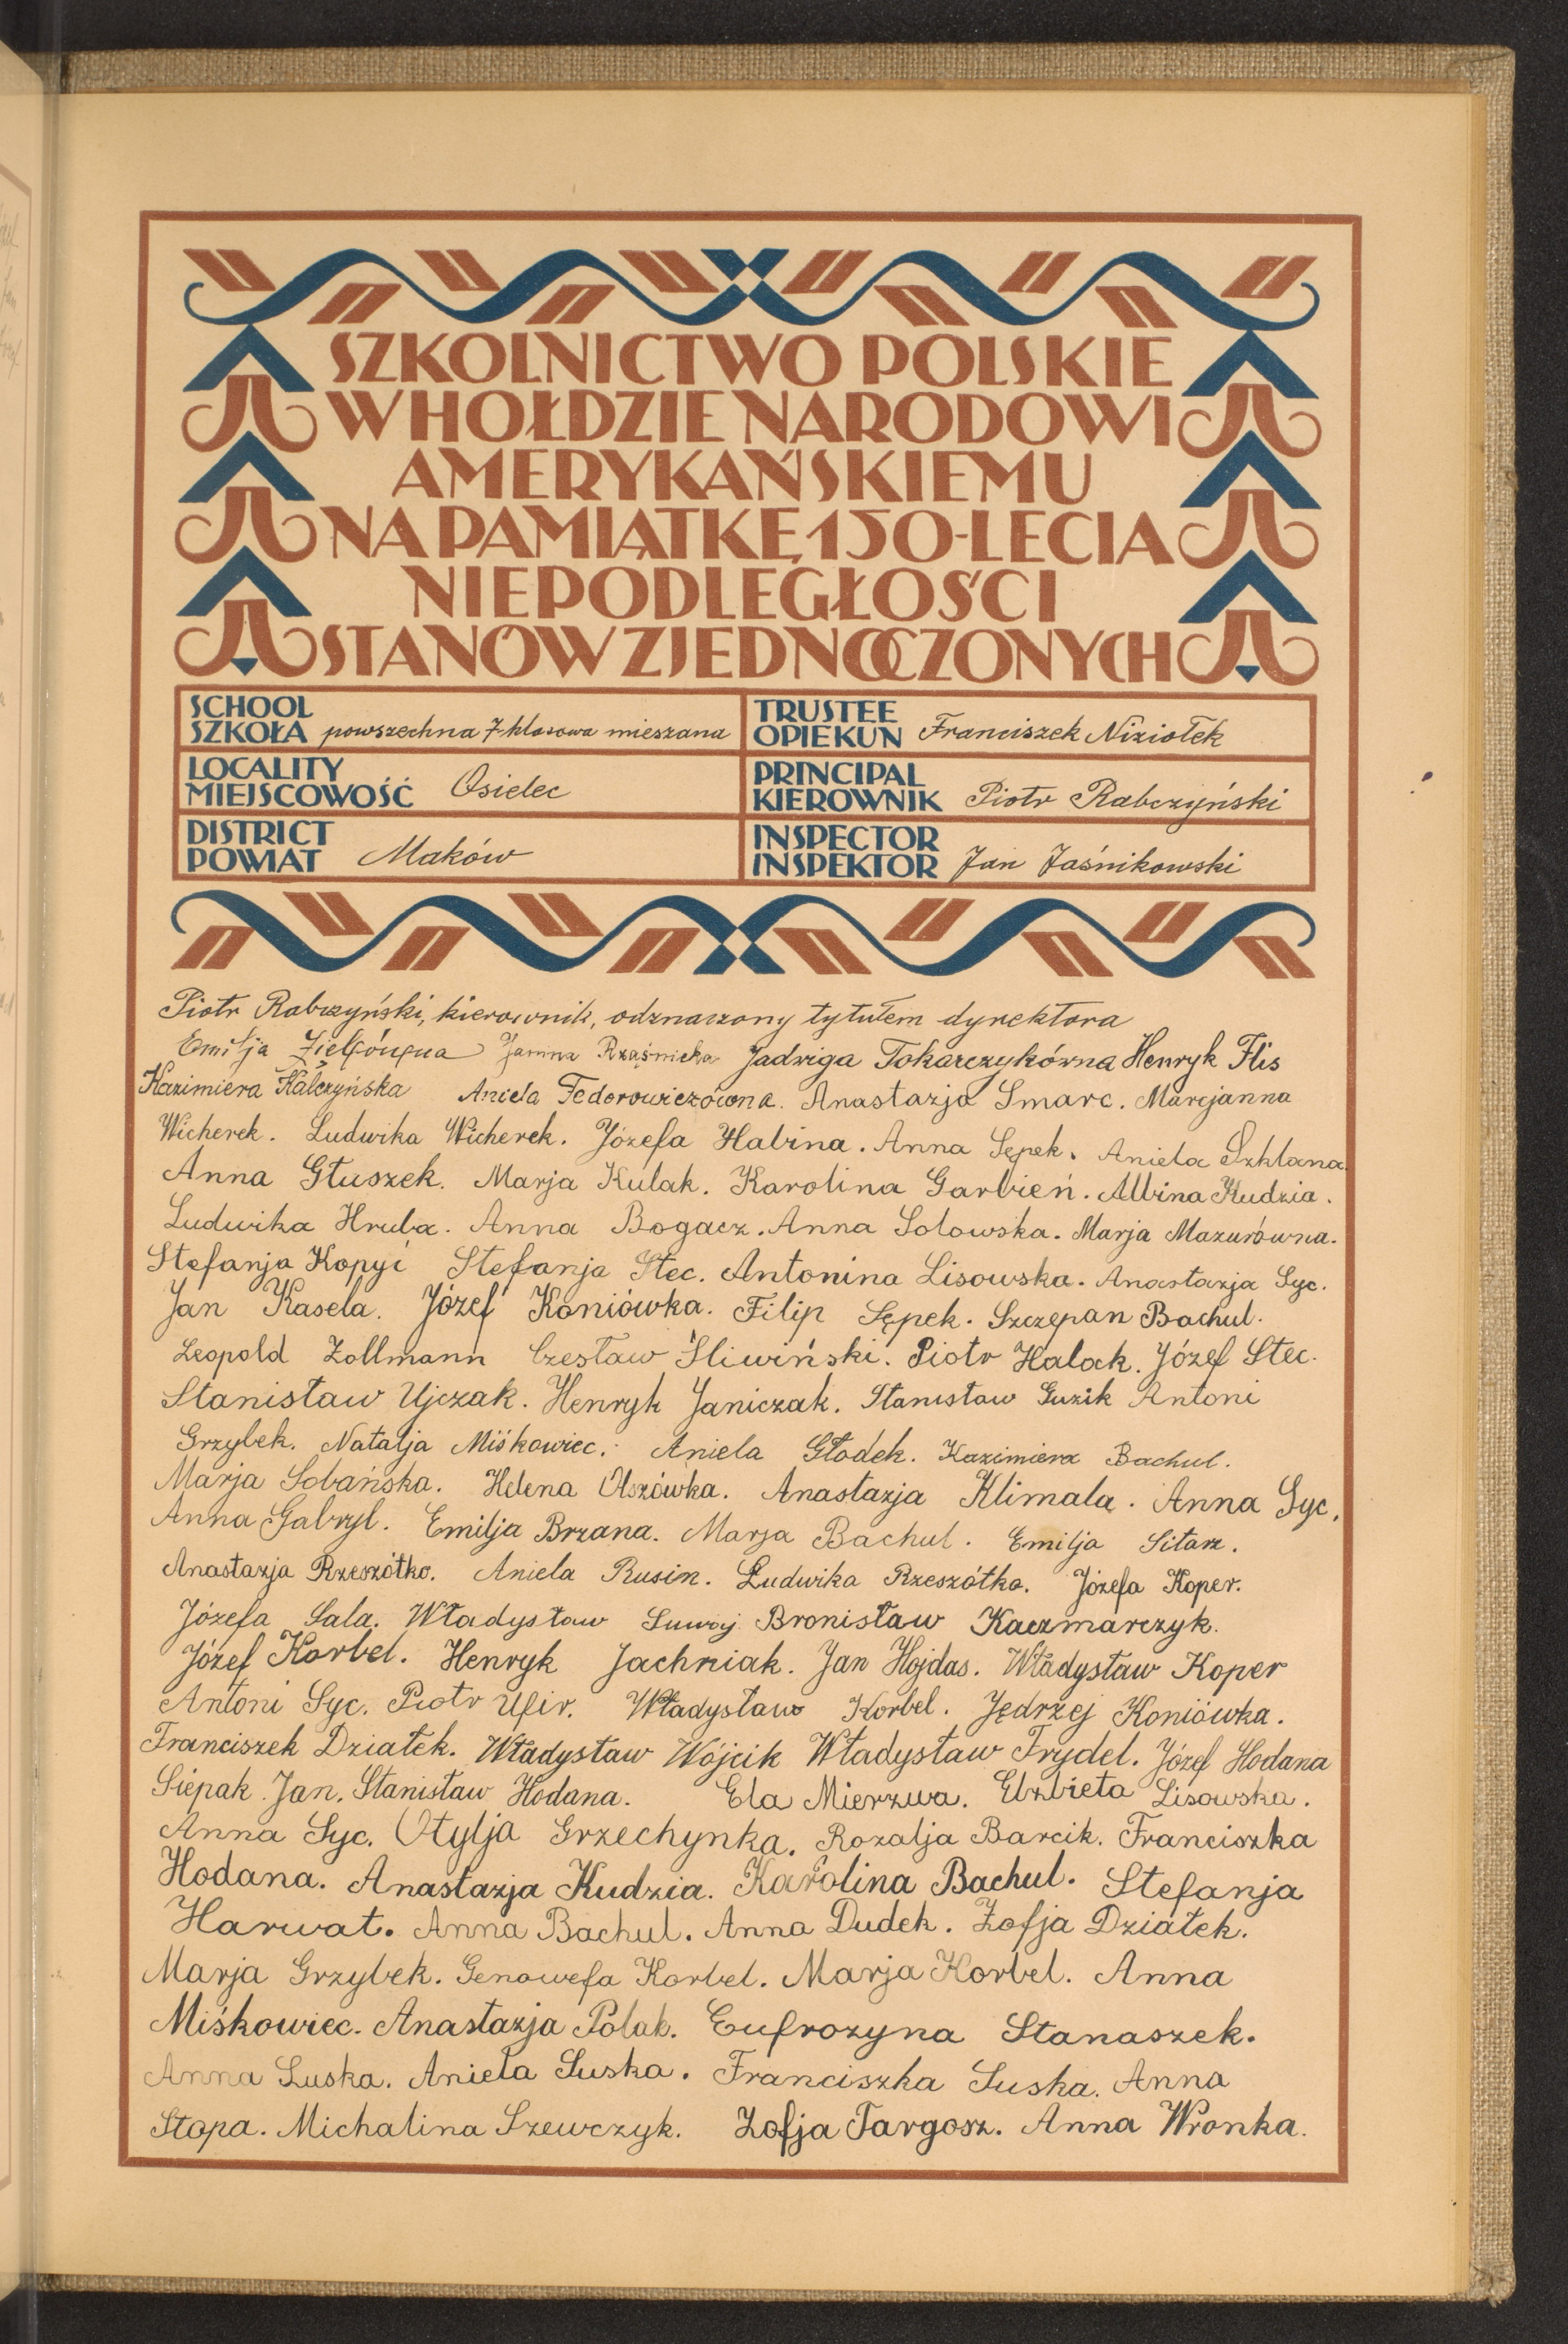 SZKOLNICTWO POLSKIE
W HOŁDZIE NARODOWI
AMERYKAŃSKIEMU
NA PAMIĄTKĘ 150-LECIA
NIEPODLEGŁOŚCI
STANÓW ZJEDNOCZONYCH
SCHOOL
SZKOŁA powszechna 7-klasowa mieszana
TRUSTEE
OPIEKUN Franciszek Niziołek
LOCALITY
MIEJSCOWOŚĆ Osielec
PRINCIPAL
KIEROWNIK Piotr Rabczyński
DISTRICT
POWIAT Maków
INSPECTOR
INSPEKTOR Jan Jaśnikowski
Piotr Rabczyński, kierownik, odznaczony tytułem dyrektora
Emilja Janina Rząśnicka Jadwiga Tokarczykówna Henryk Flis
Kazimiera Kalczyńska Aniela Fedorowiczówna. Anastazja Smarc. Marcjanna
Wicherek. Ludwika Wicherek. Józefa Habina. Anna Sępek. Aniela Szklana.
Anna Głuszek. Marja Kulak. Karolina Garbień. Albina Kudzia.
Ludwika Hruba. Anna Bogacz. Anna Solowska. Marja Mazurówna.
Stefanja Kopyć Stefanja Stec. Antonina Lisowska. Anastazja Syc.
Jan Kasela. Józef Koniówka. Filip Sępek. Szczepan Bachul.
Leopold Zollmann Czesław Śliwiński. Piotr Halock. Józef Stec.
Stanisław Ujczak. Henryk Janiczak. Stanisław Guzik Antoni
Grzybek. Natalja Miśkowiec. Aniela Głodek. Kazimiera Bachul.
Marja Sobańska. Helena Olszówka. Anastazja Klimala. Anna Syc.
Anna Gabryl. Emilja Brzana. Marja Bachul. Emilja Sitarz.
Anastazja Rzeszótko. Aniela Rusin. Ludwika Rzeszótko. Józefa Koper.
Józefa Sala. Władysław Suwaj Bronisław Kaczmarczyk.
Józef Korbel. Henryk Jachniak. Jan Hojdas. Władysław Koper
Antoni Syc. Piotr Ufir. Władysław Korbel. Jędrzej Koniówka.
Franciszek Działek. Władysław Wójcik Władysław Frydel. Józef Hodana
Siepak Jan. Stanisław Hodana. Ela Mierzwa. Elżbieta Lisowska.
Anna Syc. Otylja Grzechynka. Rozalja Barcik. Franciszka
Hodana. Anastazja Kudzia. Karolina Bachul. Stefanja
Harwat. Anna Bachul. Anna Dudek. Zofja Działek.
Marja Grzybek. Genowefa Korbel. Marja Korbel. Anna
Miśkowiec. Anastazja Polak. Eufrozyna Stanaszek.
Anna Luska. Aniela Suska. Franciszka Suska. Anna
Stopa. Michalina Szewczyk. Zofja Targosz. Anna Wronka.